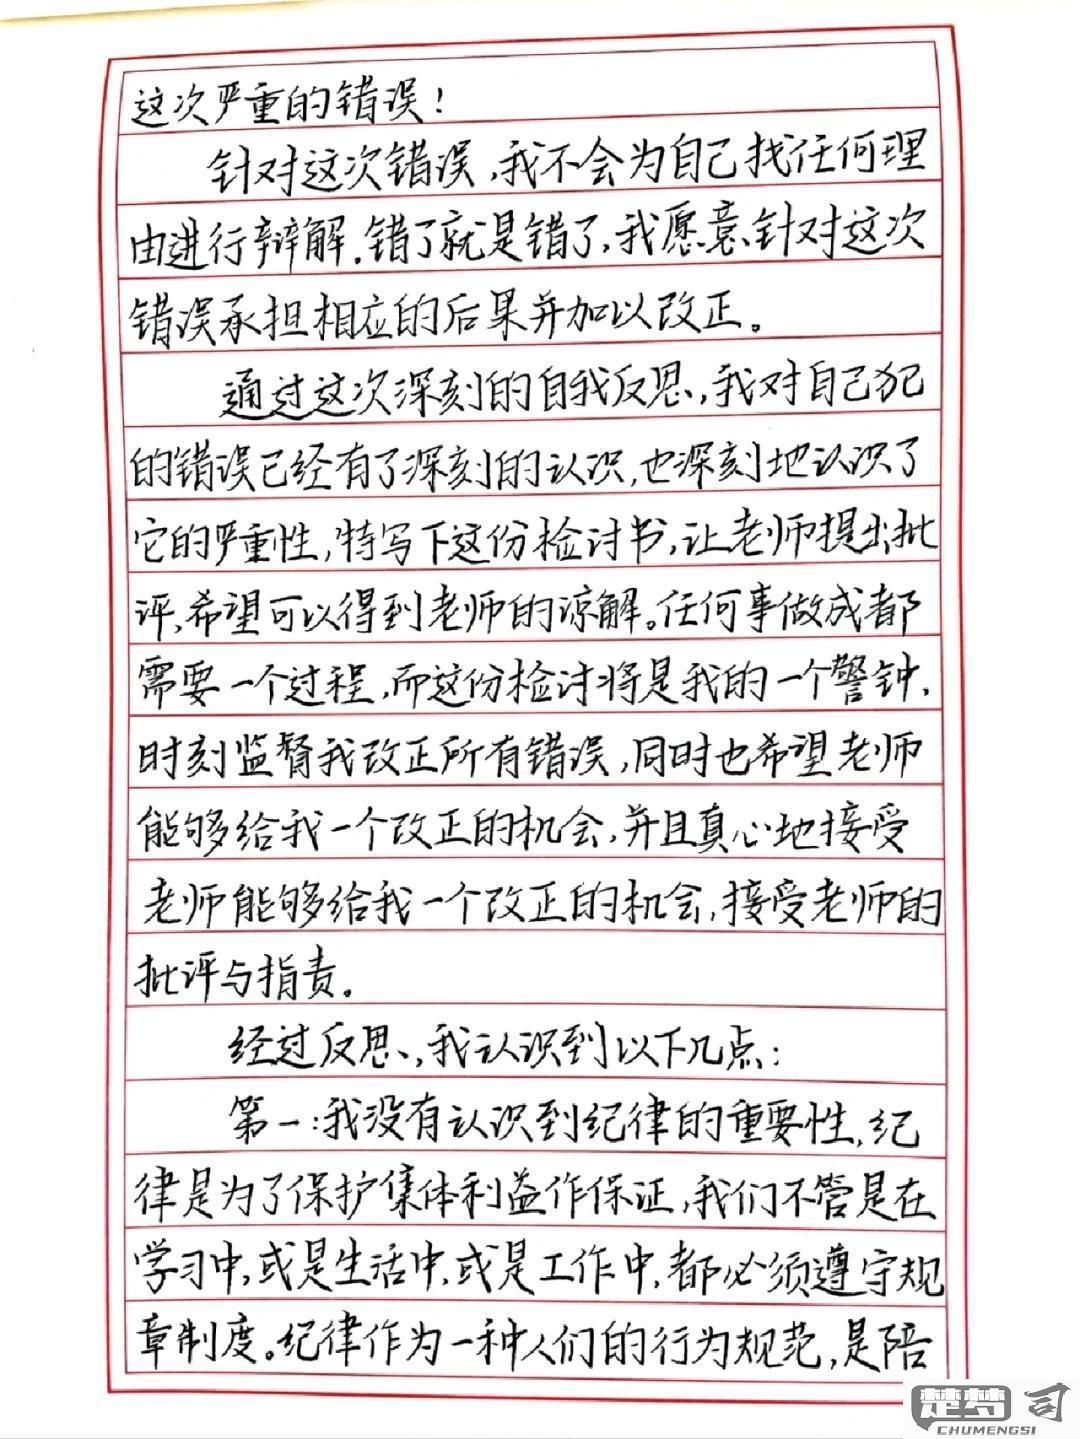 这次严重的错误!
针对这次错误,我不会为自己找任何理
由进行辩解.错了就是错了,我愿意针对这次
错误承担相应的后果并加以改正。
通过这次深刻的自我反思,我对自己犯
的错误已经有了深刻的认识,也深刻地认识了
它的严重性,特写下这份检讨书,让老师提出批
评,希望可以得到老师的谅解。任何事做成都
需要一个过程,而这份检讨将是我的一个警钟,
时刻监督我改正所有错误,同时也希望老师
能够给我一个改正的机会,并且真心地接受
老师能够给我一个改正的机会,接受老师的
批评与指责。
经过反思,我认识到以下几点:
第一:我没有认识到纪律的重要性,纪
律是为了保护集体利益作保证,我们不管是在
学习中,或是生活中,或是工作中,都必须遵守规
章制度。纪律作为一种人们的行为规范,是陪
楚梦司
CHUMENGSI